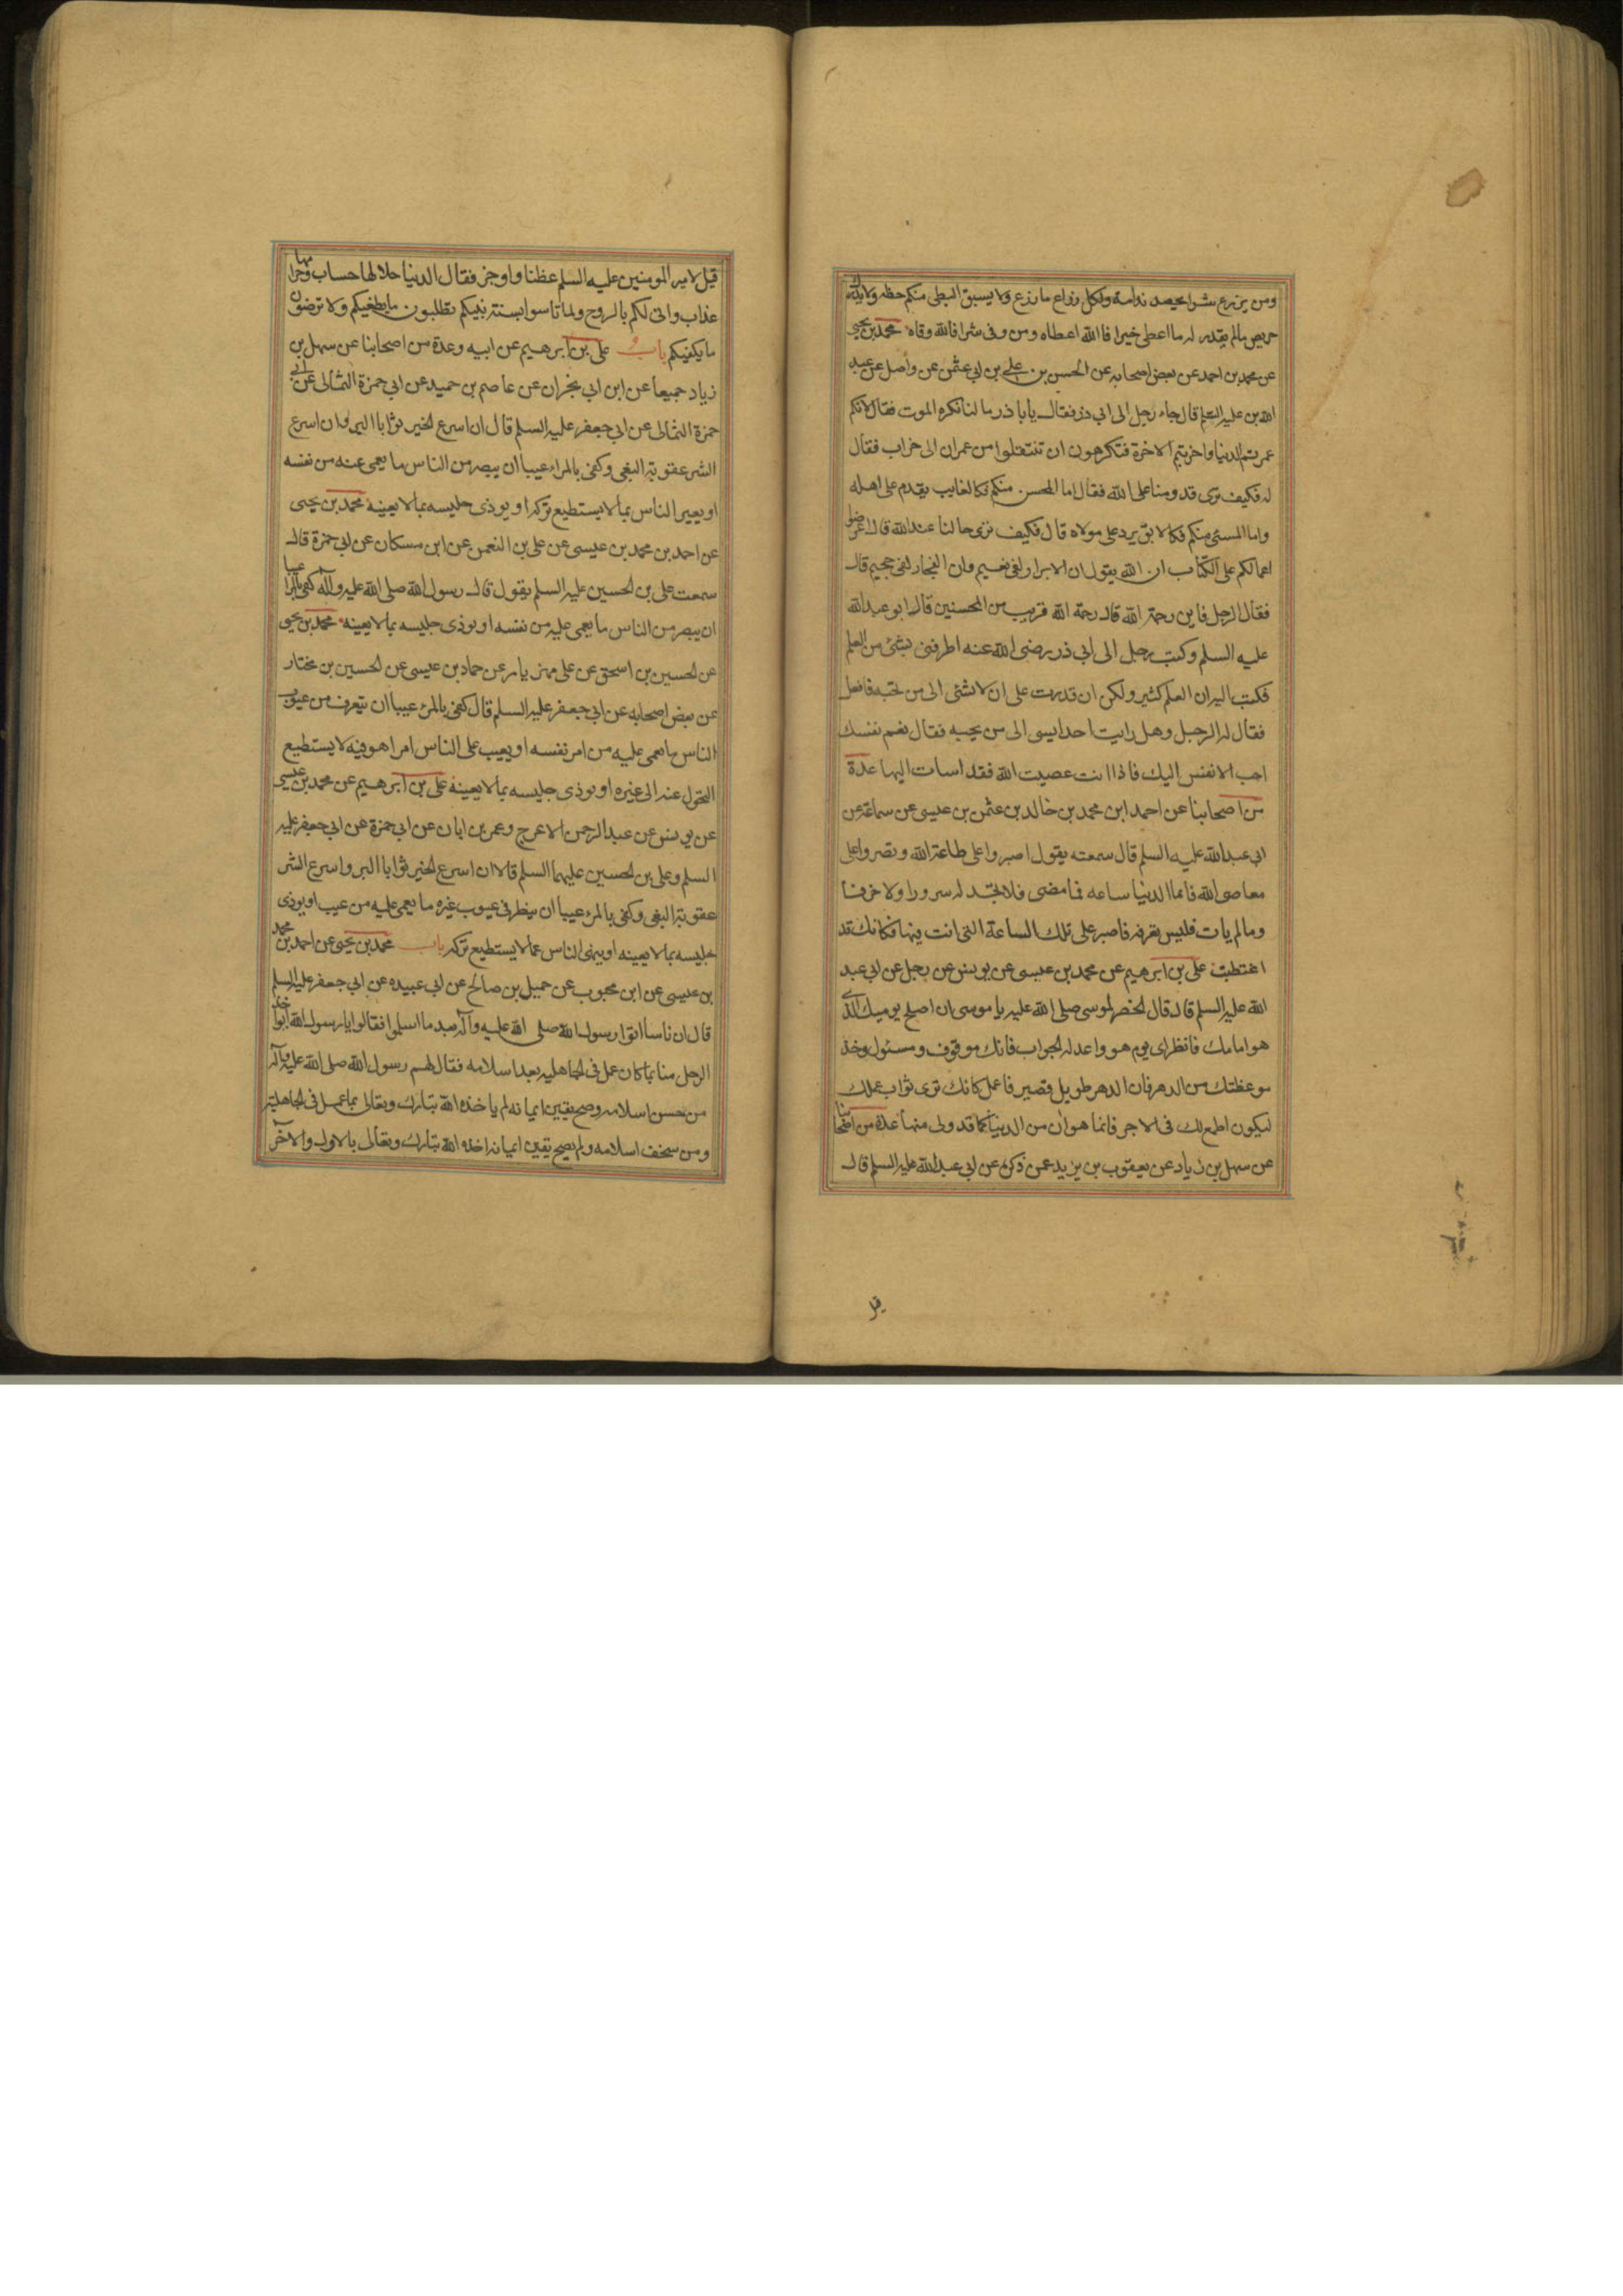 ومن يزرع شرا يحصد ندامة ولكل زراع ما زرع ولا يسبق البطى منكم حظه ولا يدرك
حريص مالم يقدر له ما اعطى خيرا فالله اعطاه ومن وقى شرا فالله وقاه محمد بن يحيى
عن محمد بن احمد عن بعض اصحابه عن الحسن بن علي بن ابي عثمن عن واصل عن عبد
الله بن عليه السلم قال جاء رجل الى ابي ذر فقال يابا ذر ما لنا نكره الموت فقال لانكم
عمرتم الدنيا واخربتم الاخرة فتكرهون ان تنتقلوا من عمران الى خراب فقال
له فكيف ترى قدومنا على الله فقال اما المحسن منكم فكالغايب يقدم على اهله
واما المسئ منكم فكالابق يرد على مولاه قال فكيف ترى حالنا عند الله قال اعرضوا
اعمالكم على الكتاب ان الله يقول ان الابرار لفى نعيم وان الفجار لفى جحيم قال
فقال الرجل فاين رحمة الله قال رحمة الله قريب من المحسنين قال ابو عبد الله
عليه السلم وكتب رجل الى ابي ذر رضى الله عنه اطرفنى بشئ من العلم
فكتب اليه ان العلم كثير ولكن ان قدرت على ان لا تسئى الى من تحبه فافعل
فقال له الرجل وهل رايت احدا يسى الى من يحبه فقال نعم نفسك
احب الانفس اليك فاذا انت عصيت الله فقد اسات اليها عدة
من اصحابنا عن احمد ابن محمد بن خالد بن عثمن بن عيسى عن سماعة عن
ابى عبد الله عليه السلم قال سمعته يقول اصبروا على طاعة الله وتصبروا على
معاصى الله فانما الدنيا ساعه فما مضى فلا تجد له سرورا ولا حزنا
وما لم يات فليس تعرفه فاصبر على تلك الساعة التى انت فيها فكانك قد
اغتطبت على بن ابرهيم عن محمد بن عيسى عن يونس عن رجل عن ابى عبد
الله عليه السلم قال قال الخضر لموسى صلى الله عليه يا موسى ان اصلح يوميك الذى
هو امامك فانظر اى يوم هو واعد له الجواب فانك موقوف ومسئول وخذ
موعظتك من الدهر فان الدهر طويل قصير فاعمل كانك ترى ثواب عملك
ليكون اطمع لك فى الاجر فانما هو ان من الدنيا كما قد ولى منها عدة من اصحابنا
عن سهل بن زياد عن يعقوب بن يزيد عمن ذكره عن ابى عبد الله عليه السلم قال
قيل
قيل لامير المومنين عليه السلم عظنا واوجز فقال الدنيا حلالها حساب وحرامها
عذاب وانى لكم بالروح ولما تاسوا بسنة نبيكم تطلبون ما يطغيكم ولا ترضون
ما يكفيكم باب على بن ابرهيم عن ابيه وعدة من اصحابنا عن سهل بن
زياد جميعا عن ابن ابى نجران عن عاصم بن حميد عن ابى حمزة الثمالى عن ابي
حمزة الثمالى عن ابى جعفر عليه السلم قال ان اسرع الخير ثوابا البر وان اسرع
الشر عقوبة البغى وكفى بالمراء عيبا ان يبصر من الناس ما يعمى عنه من نفسه
او يعير الناس بما لا يستطيع تركه او يوذى جليسه بما لا يعينه محمد بن يحيى
عن احمد بن محمد بن عيسى عن على بن النعمن عن ابن مسكان عن ابى حمزة قال
سمعت على بن الحسين عليه السلم يقول قال رسول الله صلى الله عليه وآله كفى بالمرا عيبا
ان يبصر من الناس ما يعمى عليه من نفسه او يوذى جليسه بما لا يعينه محمد بن يحيى
عن الحسين بن اسحق عن على مهزيار عن حماد بن عيسى عن الحسين بن مختار
عن بعض اصحابه عن ابى جعفر عليه السلم قال كفى بالمرئ عيبا ان يتعرف من عيوب
الناس ما يعمى عليه من امر نفسه او يعيب على الناس امرا هو فيه لا يستطيع
التحول عنه الى غيره او يوذى جليسه بما لا يعينه على بن ابرهيم عن محمد بن عيسى
عن يونس عن عبد الرحمن الاعرج وعمر بن ابان عن ابى حمزة عن ابى جعفر عليه
السلم وعلى بن الحسين عليهما السلم قالا ان اسرع الخير ثوابا البر واسرع الشر
عقوبة البغى وكفى بالمرء عيبا ان ينظر فى عيوب غيره ما يعمى عليه من عيب او يوذى
جليسه بما لا يعينه او ينهى الناس عما لا يستطيع تركه باب محمد بن يحيى عن احمد بن محمد
بن عيسى عن ابن محبوب عن جميل بن صالح عن ابى عبيده عن ابى جعفر عليه السلم
قال ان ناسا اتوا رسول الله صلى الله عليه وآله بعد ما اسلموا فقالوا يا رسول الله ايواخذ
الرجل منا بما كان عمل فى الجاهليه بعد اسلامه فقال لهم رسول الله صلى الله عليه وآله
من حسن اسلامه وصح يقين ايمانه لم ياخذه الله تبارك وتعالى بما عمل فى الجاهلية
ومن سخف اسلامه ولم يصح يقين ايمانه اخذه الله تبارك وتعالى بالاول والآخر